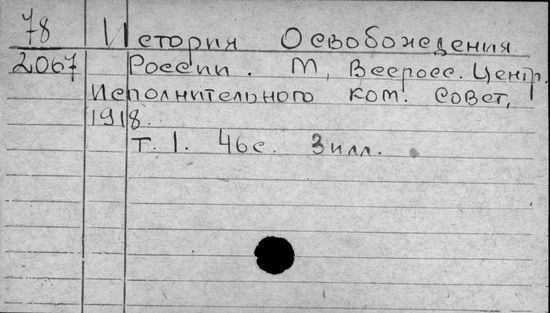 78 История Освобождения
2067 России. М, Веросс. Центр.
Исполнительного ком. Совет,
1918.
Т. 1. 46с. 3илл.